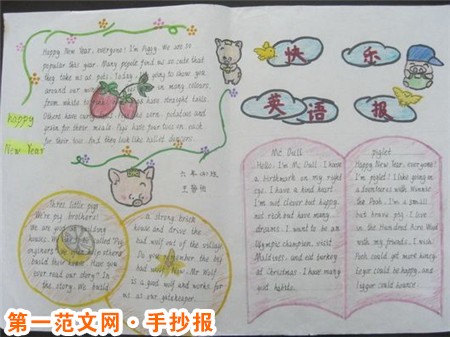 Happy New Year, everyone! I'm Piggy. We are so
popular this year. Many people find us so cute that
they take us as pets. Today, I am going to show you
around our in many colours
from white to have straight tails.
Others have corn, potatoes and
grain for their meals. Pigs have four toes on each
Happy
New Year
快乐
英语报
Three little pigs
We're pig brothers!
we are
house. We're called Pig
engineers. help others
build their house. Have you
ever read our story? In
the story, We build
a strong brick
house and drive the
bad wolf out of the village
Do you remember the big
bad wolf? Mr Wolf
is a good and works for
us as our gatekeeper.
Mc Dull
Hello, I'm Mc Dull. I have
a birthmark on my right
eye. I have a kind heart.
I'm not clever but happy,
not rich but have many
dreams. I want to be an
Olympic champion, visit
Maldives, and eat turkey
at Christmas. I have many
good habits.
piglet
Happy New Year, everyone!
I'm piglet! I like going in
adventures with Winnie
the Pooh. I'm a small
but brave pig. I live in
the Hundred Acre Wood
with my friends. I wish
Pooh could get more honey,
could be happy, and
could bounce.
第一范文网·手抄报